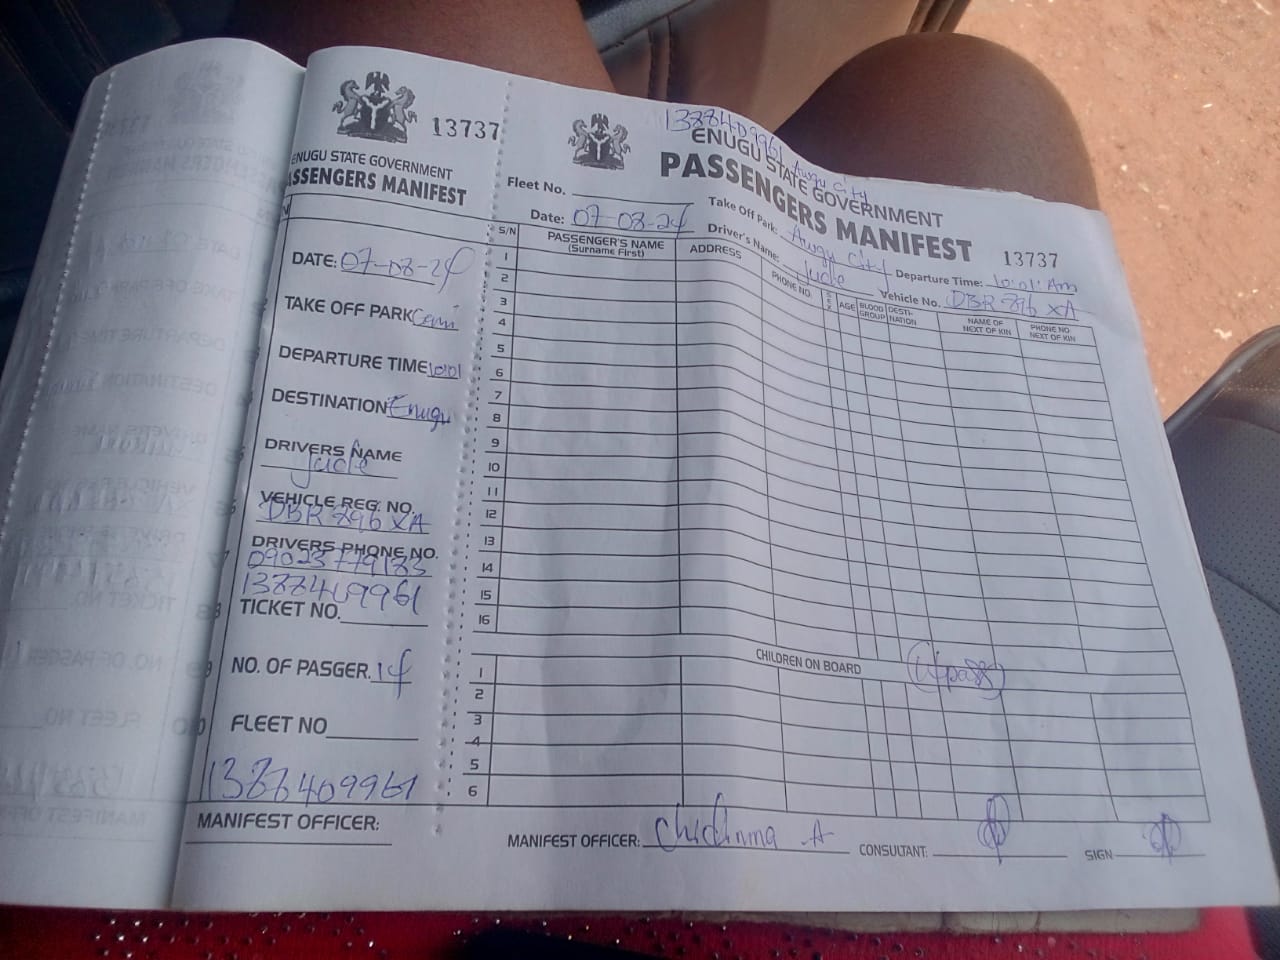 13737
ENUGU STATE GOVERNMENT
ASSENGERS MANIFEST
DATE: 07-08-24
TAKE OFF PARK
DEPARTURE TIME 10:01
DESTINATION Enugu
DRIVERS NAME
Jude
VEHICLE REG. NO.
DBR 896 XA
DRIVERS PHONE NO.
09023779183
1388409961
TICKET NO.
NO. OF PASGER. 14
FLEET NO
1388409961
MANIFEST OFFICER:
1388409961 Awgu City
ENUGU STATE GOVERNMENT
PASSENGERS MANIFEST
13737
Fleet No.
Take Off Park: Awgu City
Departure Time: 10:01 Am
Date: 07-08-24
Driver's Name: Jude
Vehicle No. DBR 896 XA
S/N PASSENGER'S NAME (Surname First) ADDRESS PHONE NO. SEX AGE BLOOD GROUP DESTI-NATION NAME OF NEXT OF KIN PHONE NO NEXT OF KIN
1
2
3
4
5
6
7
8
9
10
11
12
13
14
15
16
CHILDREN ON BOARD
1
2
3
4
5
6
MANIFEST OFFICER: Chidinma A
CONSULTANT:
SIGN